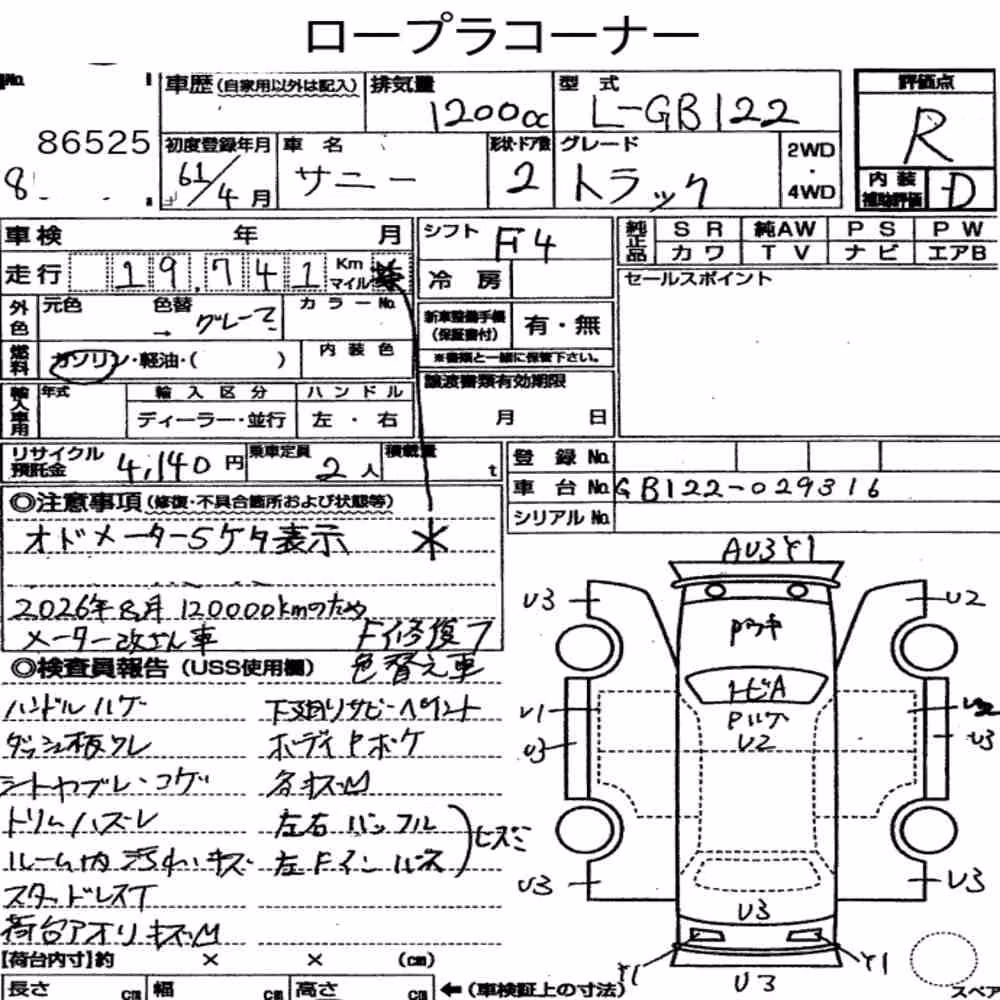 ロープラコーナー
No.
86525
8
車歴(自家用以外は記入)
排気量
1200cc
型式
L-GB122
評価点
R
初度登録年月
61/4月
車名
サニー
形状・ドア数
2
グレード
トラック
2WD
・
4WD
内装
補助評価
D
車検 年 月
シフト
F4
純正品
SR 純AW PS PW
カワ TV ナビ エアB
走行 19,741 Km マイル
冷房
セールスポイント
外色
元色 色替 カラーNo.
→ グレーマ
新車整備手帳
(保証書付)
有・無
※書類と一緒に保管下さい。
燃料
ガソリン・軽油・( )
内装色
譲渡書類有効期限
月 日
輸入車用
年式
輸入区分
ハンドル
ディーラー・並行
左・右
リサイクル
預託金
4,140円
乗車定員
2人
積載量
t
登録No.
車台No. GB122-029316
シリアルNo.
◎注意事項(修復・不具合箇所および状態等)
オドメーター5ケタ表示 *
2026年8月 120000kmのため
メーター改ざん車
F修復フ
色替え車
◎検査員報告(USS使用欄)
ハンドルハゲ
下廻りサビ・ペイント
ダッシュ板ワレ
ボディPボケ
シートヤブレ・コゲ
各キズM
トリムハズレ
左右バッフル
ヒズミ
ルーム内汚れ・キズ
左Fインパネ
スタッドレスT
荷台アオリキズM
【荷台内寸】約 × × (cm)
長さ cm 幅 cm 高さ cm ←(車検証上の寸法)
AU3Y1
U3
U2
トビA
Pハゲ
U2
U1
U3
U3
U3
U3
U3
Y1
Y1
U3
スペア